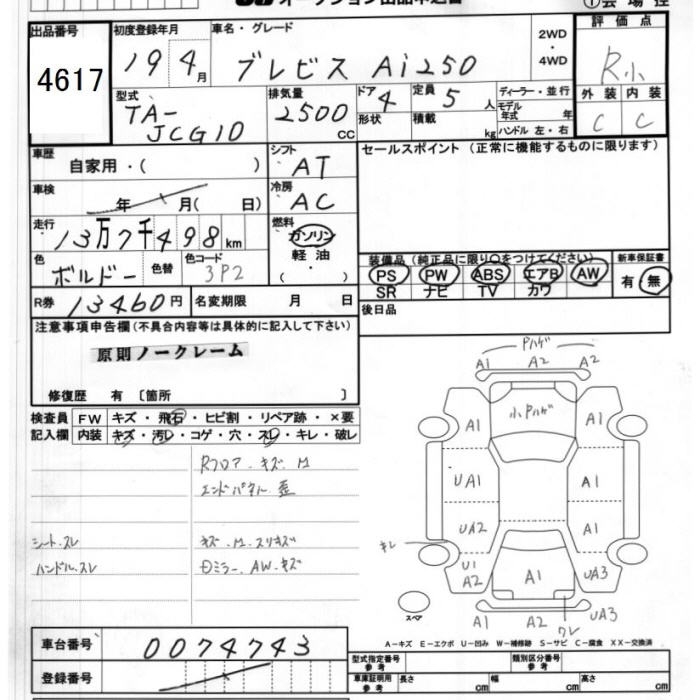 オークション出品申込書
①会場控
出品番号 4617
初度登録年月 19 4月
車名・グレード ブレビス Ai250
2WD・4WD
評価点 R小
外装 C 内装 C
型式 TA-JCG10
排気量 2500 CC
ドア 4
形状
定員 5人
積載 kg
ディーラー・並行
モデル年式 年
ハンドル 左・右
車歴 自家用・( )
シフト AT
セールスポイント (正常に機能するものに限ります)
車検 年 月( 日)
冷房 AC
走行 13万7千498km
燃料 ガソリン 軽油・( )
色 ボルドー 色替 色コード 3P2
装備品(純正品に限り○をつけてください)
PS PW ABS エアB AW
SR ナビ TV カワ
新車保証書 有・無
R券 13460円 名変期限 月 日
後日品
注意事項申告欄(不具合内容等は具体的に記入して下さい)
原則ノークレーム
修復歴 有 〔箇所 〕
検査員記入欄
FW キズ・飛石・ヒビ割・リペア跡・×要
内装 キズ・汚レ・コゲ・穴・スレ・キレ・破レ
Rフロア キズ M
エンドパネル 歪
シート スレ キズ M スリキズ
ハンドル スレ Dミラー AW キズ
Pハゲ
A1 A2 A2
小Pハゲ
A1 A1
UA1 A1
UA2 A1
キレ
U1 A2 A1 UA3
A1 A2 UA3
ワレ
スペア
A-キズ E-エクボ U-凹み W-補修跡 S-サビ C-腐食 XX-交換済
車台番号 0074743
登録番号
型式指定番号 参考
類別区分番号 参考
車庫証明用 参考 長さ cm 幅 cm 高さ cm